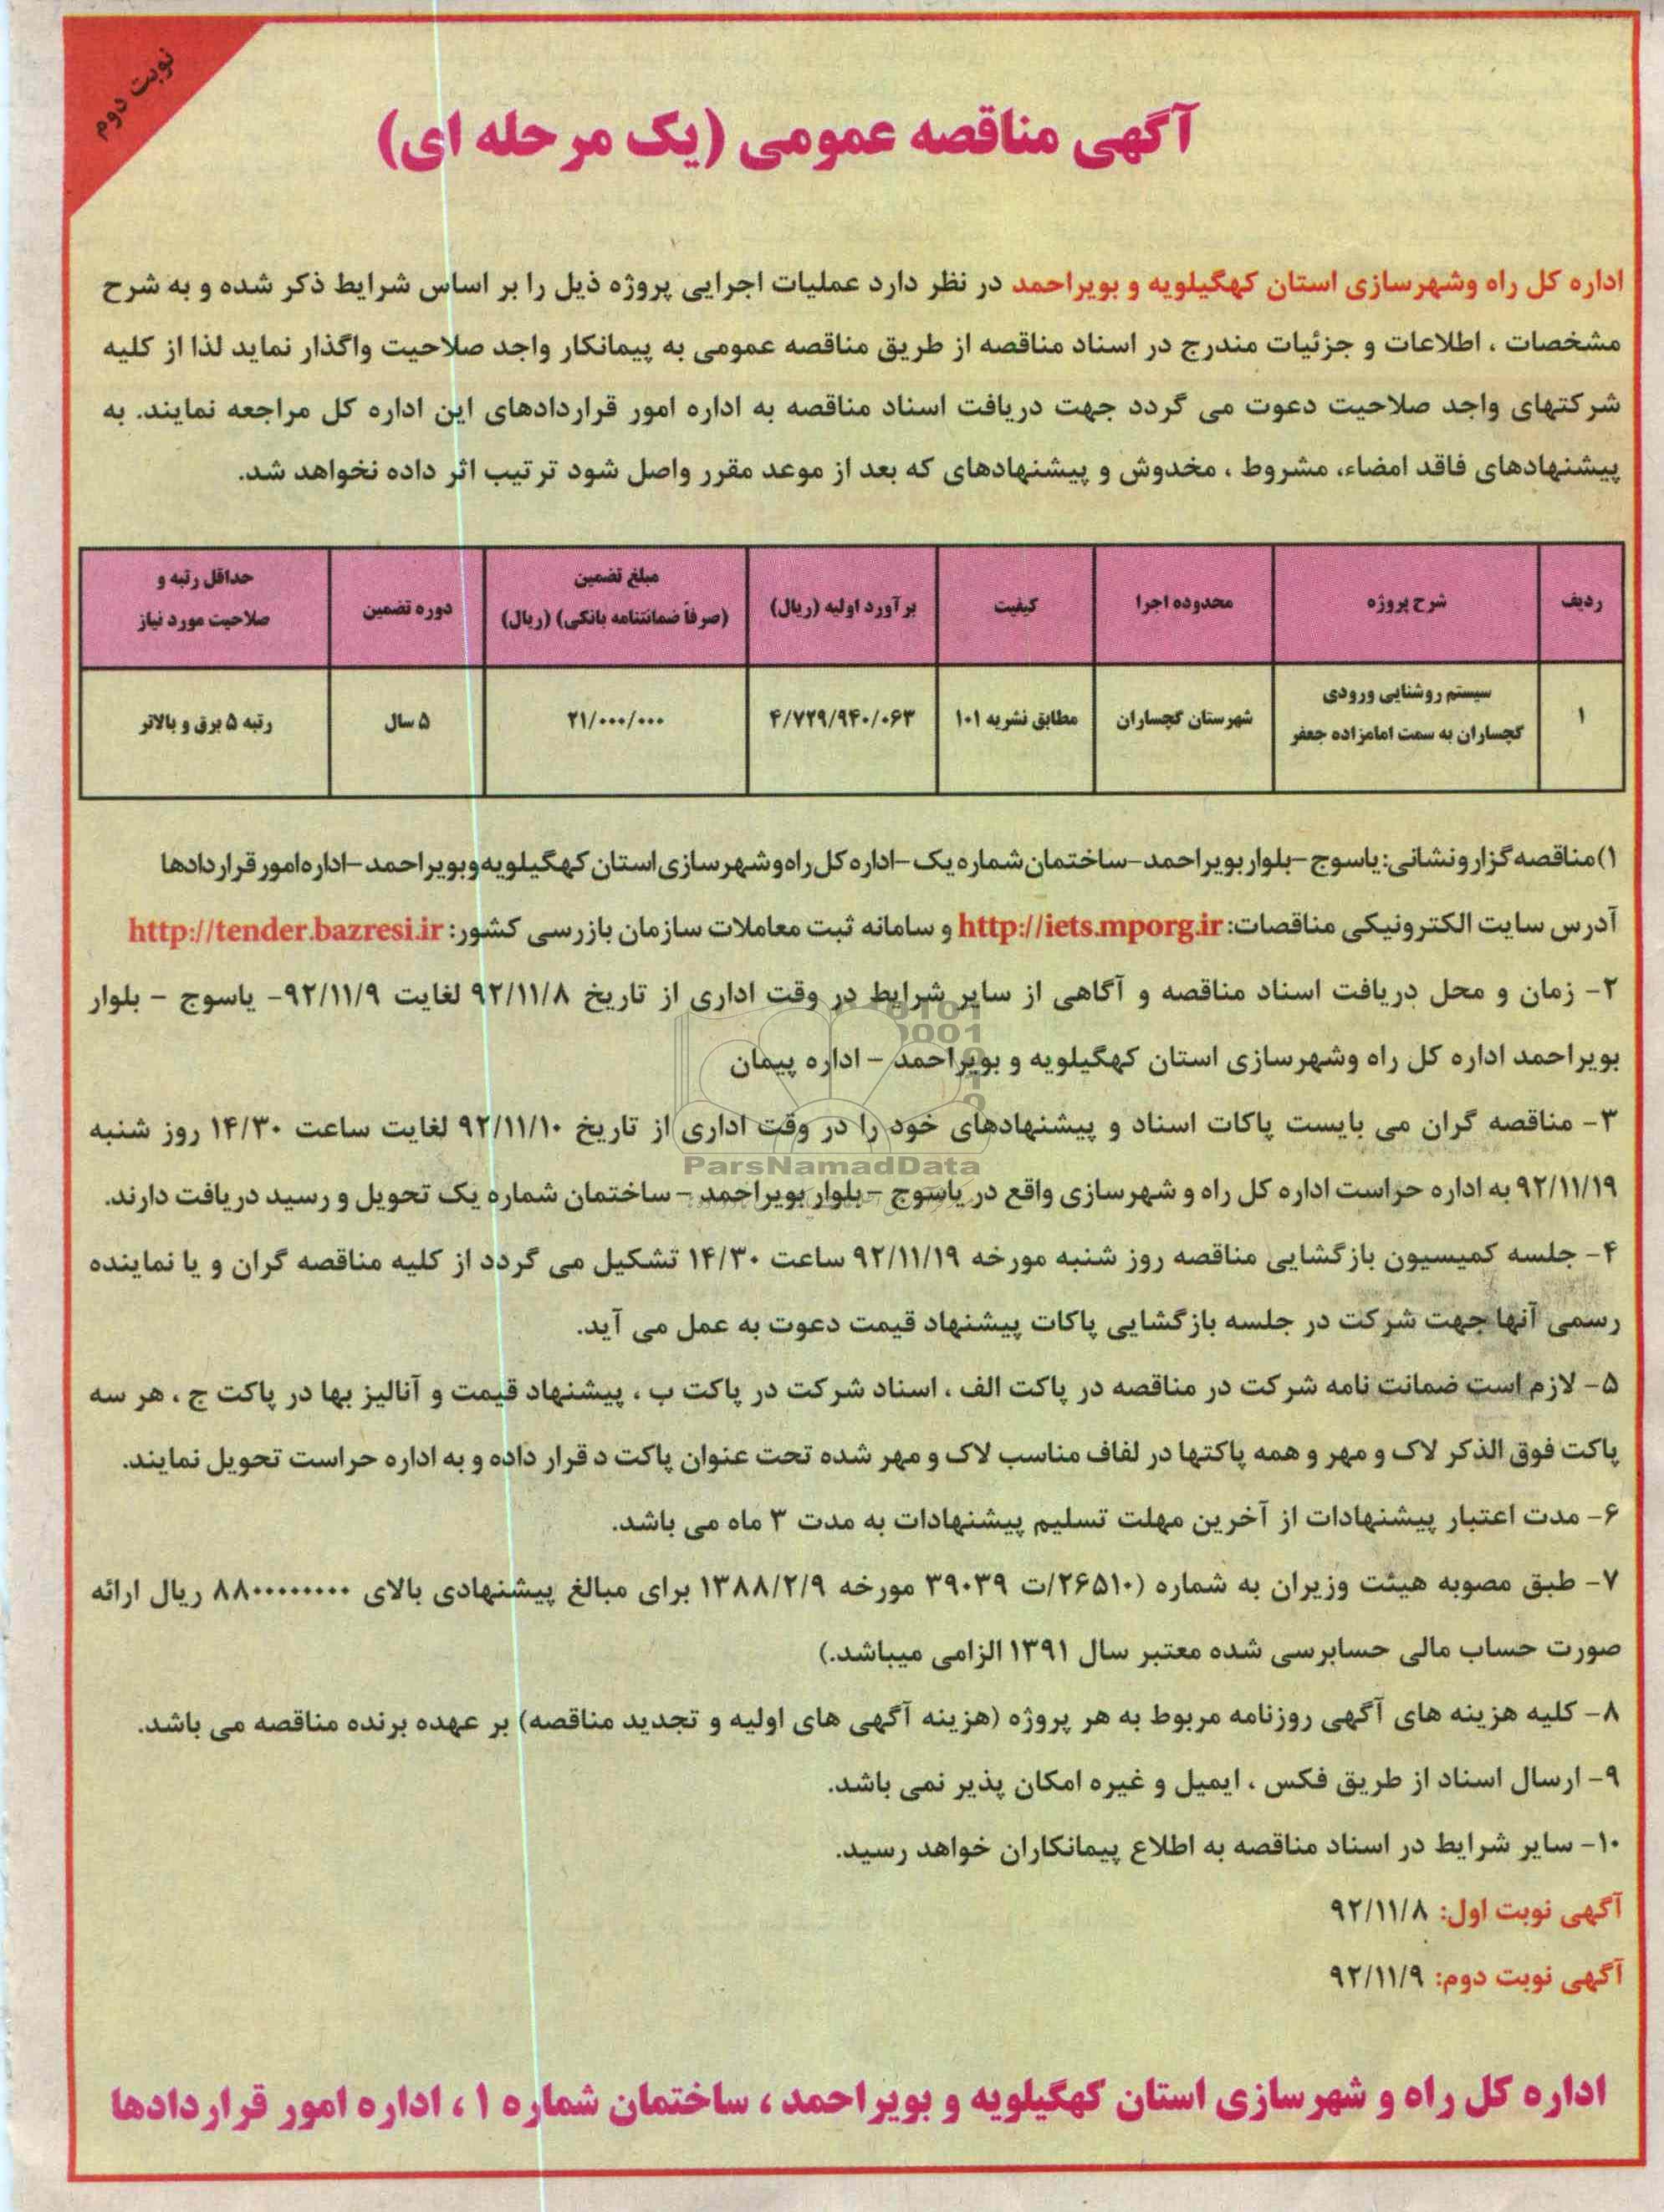 نوبت دوم
آگهی مناقصه عمومی (یک مرحله ای)
اداره کل راه وشهرسازی استان کهگیلویه و بویراحمد در نظر دارد عملیات اجرایی پروژه ذیل را بر اساس شرایط ذکر شده و به شرح
مشخصات ، اطلاعات و جزئیات مندرج در اسناد مناقصه از طریق مناقصه عمومی به پیمانکار واجد صلاحیت واگذار نماید لذا از کلیه
شرکتهای واجد صلاحیت دعوت می گردد جهت دریافت اسناد مناقصه به اداره امور قراردادهای این اداره کل مراجعه نمایند. به
پیشنهادهای فاقد امضاء، مشروط ، مخدوش و پیشنهادهای که بعد از موعد مقرر واصل شود ترتیب اثر داده نخواهد شد.
ردیف
شرح پروژه
محدوده اجرا
کیفیت
برآورد اولیه (ریال)
مبلغ تضمین
(صرفاً ضمانتنامه بانکی) (ریال)
دوره تضمین
حداقل رتبه و
صلاحیت مورد نیاز
۱
سیستم روشنایی ورودی
گچساران به سمت امامزاده جعفر
شهرستان گچساران
مطابق نشریه ۱۰۱
۴/۷۲۹/۹۴۰/۰۶۳
۲۱/۰۰۰/۰۰۰
۵ سال
رتبه ۵ برق و بالاتر
۱)مناقصه گزار و نشانی: یاسوج -بلوار بویراحمد-ساختمان شماره یک -اداره کل راه و شهرسازی استان کهگیلویه و بویراحمد -اداره امور قراردادها
آدرس سایت الکترونیکی مناقصات: http://iets.mporg.ir و سامانه ثبت معاملات سازمان بازرسی کشور: http://tender.bazresi.ir
۲- زمان و محل دریافت اسناد مناقصه و آگاهی از سایر شرایط در وقت اداری از تاریخ ۹۲/۱۱/۸ لغایت ۹۲/۱۱/۹- یاسوج - بلوار
بویراحمد اداره کل راه وشهرسازی استان کهگیلویه و بویراحمد - اداره پیمان
۳- مناقصه گران می بایست پاکات اسناد و پیشنهادهای خود را در وقت اداری از تاریخ ۹۲/۱۱/۱۰ لغایت ساعت ۱۴/۳۰ روز شنبه
ParsNamadData
۹۲/۱۱/۱۹ به اداره حراست اداره کل راه و شهرسازی واقع در یاسوج - بلوار بویراحمد - ساختمان شماره یک تحویل و رسید دریافت دارند.
۴- جلسه کمیسیون بازگشایی مناقصه روز شنبه مورخه ۹۲/۱۱/۱۹ ساعت ۱۴/۳۰ تشکیل می گردد از کلیه مناقصه گران و یا نماینده
رسمی آنها جهت شرکت در جلسه بازگشایی پاکات پیشنهاد قیمت دعوت به عمل می آید.
۵- لازم است ضمانت نامه شرکت در مناقصه در پاکت الف ، اسناد شرکت در پاکت ب ، پیشنهاد قیمت و آنالیز بها در پاکت ج ، هر سه
پاکت فوق الذکر لاک و مهر و همه پاکتها در لفاف مناسب لاک و مهر شده تحت عنوان پاکت د قرار داده و به اداره حراست تحویل نمایند.
۶- مدت اعتبار پیشنهادات از آخرین مهلت تسلیم پیشنهادات به مدت ۳ ماه می باشد.
۷- طبق مصوبه هیئت وزیران به شماره (۲۶۵۱۰/ت ۳۹۰۳۹ مورخه ۱۳۸۸/۲/۹ برای مبالغ پیشنهادی بالای ۸۸۰۰۰۰۰۰۰۰۰ ریال ارائه
صورت حساب مالی حسابرسی شده معتبر سال ۱۳۹۱ الزامی میباشد.)
۸- کلیه هزینه های آگهی روزنامه مربوط به هر پروژه (هزینه آگهی های اولیه و تجدید مناقصه) بر عهده برنده مناقصه می باشد.
۹- ارسال اسناد از طریق فکس ، ایمیل و غیره امکان پذیر نمی باشد.
۱۰- سایر شرایط در اسناد مناقصه به اطلاع پیمانکاران خواهد رسید.
آگهی نوبت اول: ۹۲/۱۱/۸
آگهی نوبت دوم: ۹۲/۱۱/۹
اداره کل راه و شهرسازی استان کهگیلویه و بویراحمد ، ساختمان شماره ۱ ، اداره امور قراردادها